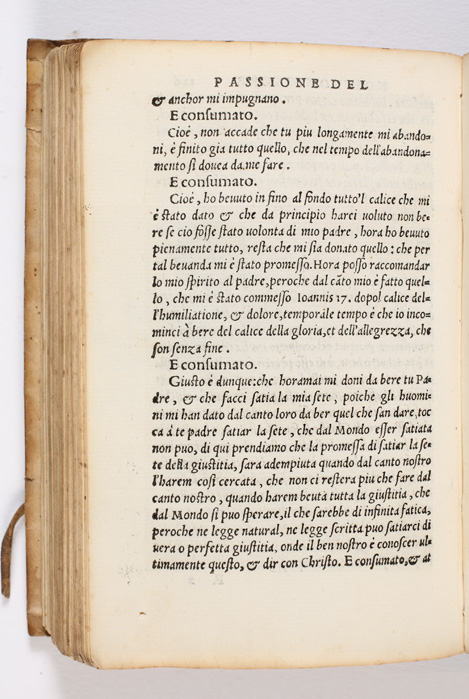 PASSIONE DEL
& anchor mi impugnano.
E consumato.
Cioè, non accade che tu piu longamente mi abando=
ni, è finito gia tutto quello, che nel tempo dell'abandona=
mento si douea da.me fare.
E consumato.
Cioè, ho beuuto in fino al fondo tutto'l calice che mi
è stato dato & che da principio harei uoluto non be=
re se cio fosse stato uolonta di mio padre, hora ho beuuto
pienamente tutto, resta che mi sia donato quello: che per
tal beuanda mi è stato promesso. Hora posso raccomandar
lo mio spirito al padre, peroche dal cāto mio è fatto quel=
lo, che mi è stato commesso Ioannis 17. dopo'l calice del=
l'humiliatione, & dolore, temporale tempo è che io inco=
minci à bere del calice della gloria, et dell'allegrezza, che
son senza fine.
E consumato.
Giusto è dunque: che horamai mi doni da bere tu Pa=
dre, & che facci satia la mia sete, poiche gli huomi=
ni mi han dato dal canto loro da ber quel che san dare, toc
ca à te padre satiar la sete, che dal Mondo esser satiata
non puo, di qui prendiamo che la promessa di satiar la se=
te della giustitia, sara adempiuta quando dal canto nostro
l'harem cosi cercata, che non ci restera piu che fare dal
canto nostro, quando harem beuta tutta la giustitia, che
dal Mondo si puo sperare, il che sarebbe di infinita fatica,
peroche ne legge natural, ne legge scritta puo satiarci di
uera o perfetta giustitia, onde il ben nostro è conoscer ul=
timamente questo, & dir con Christo. E consumato, & at